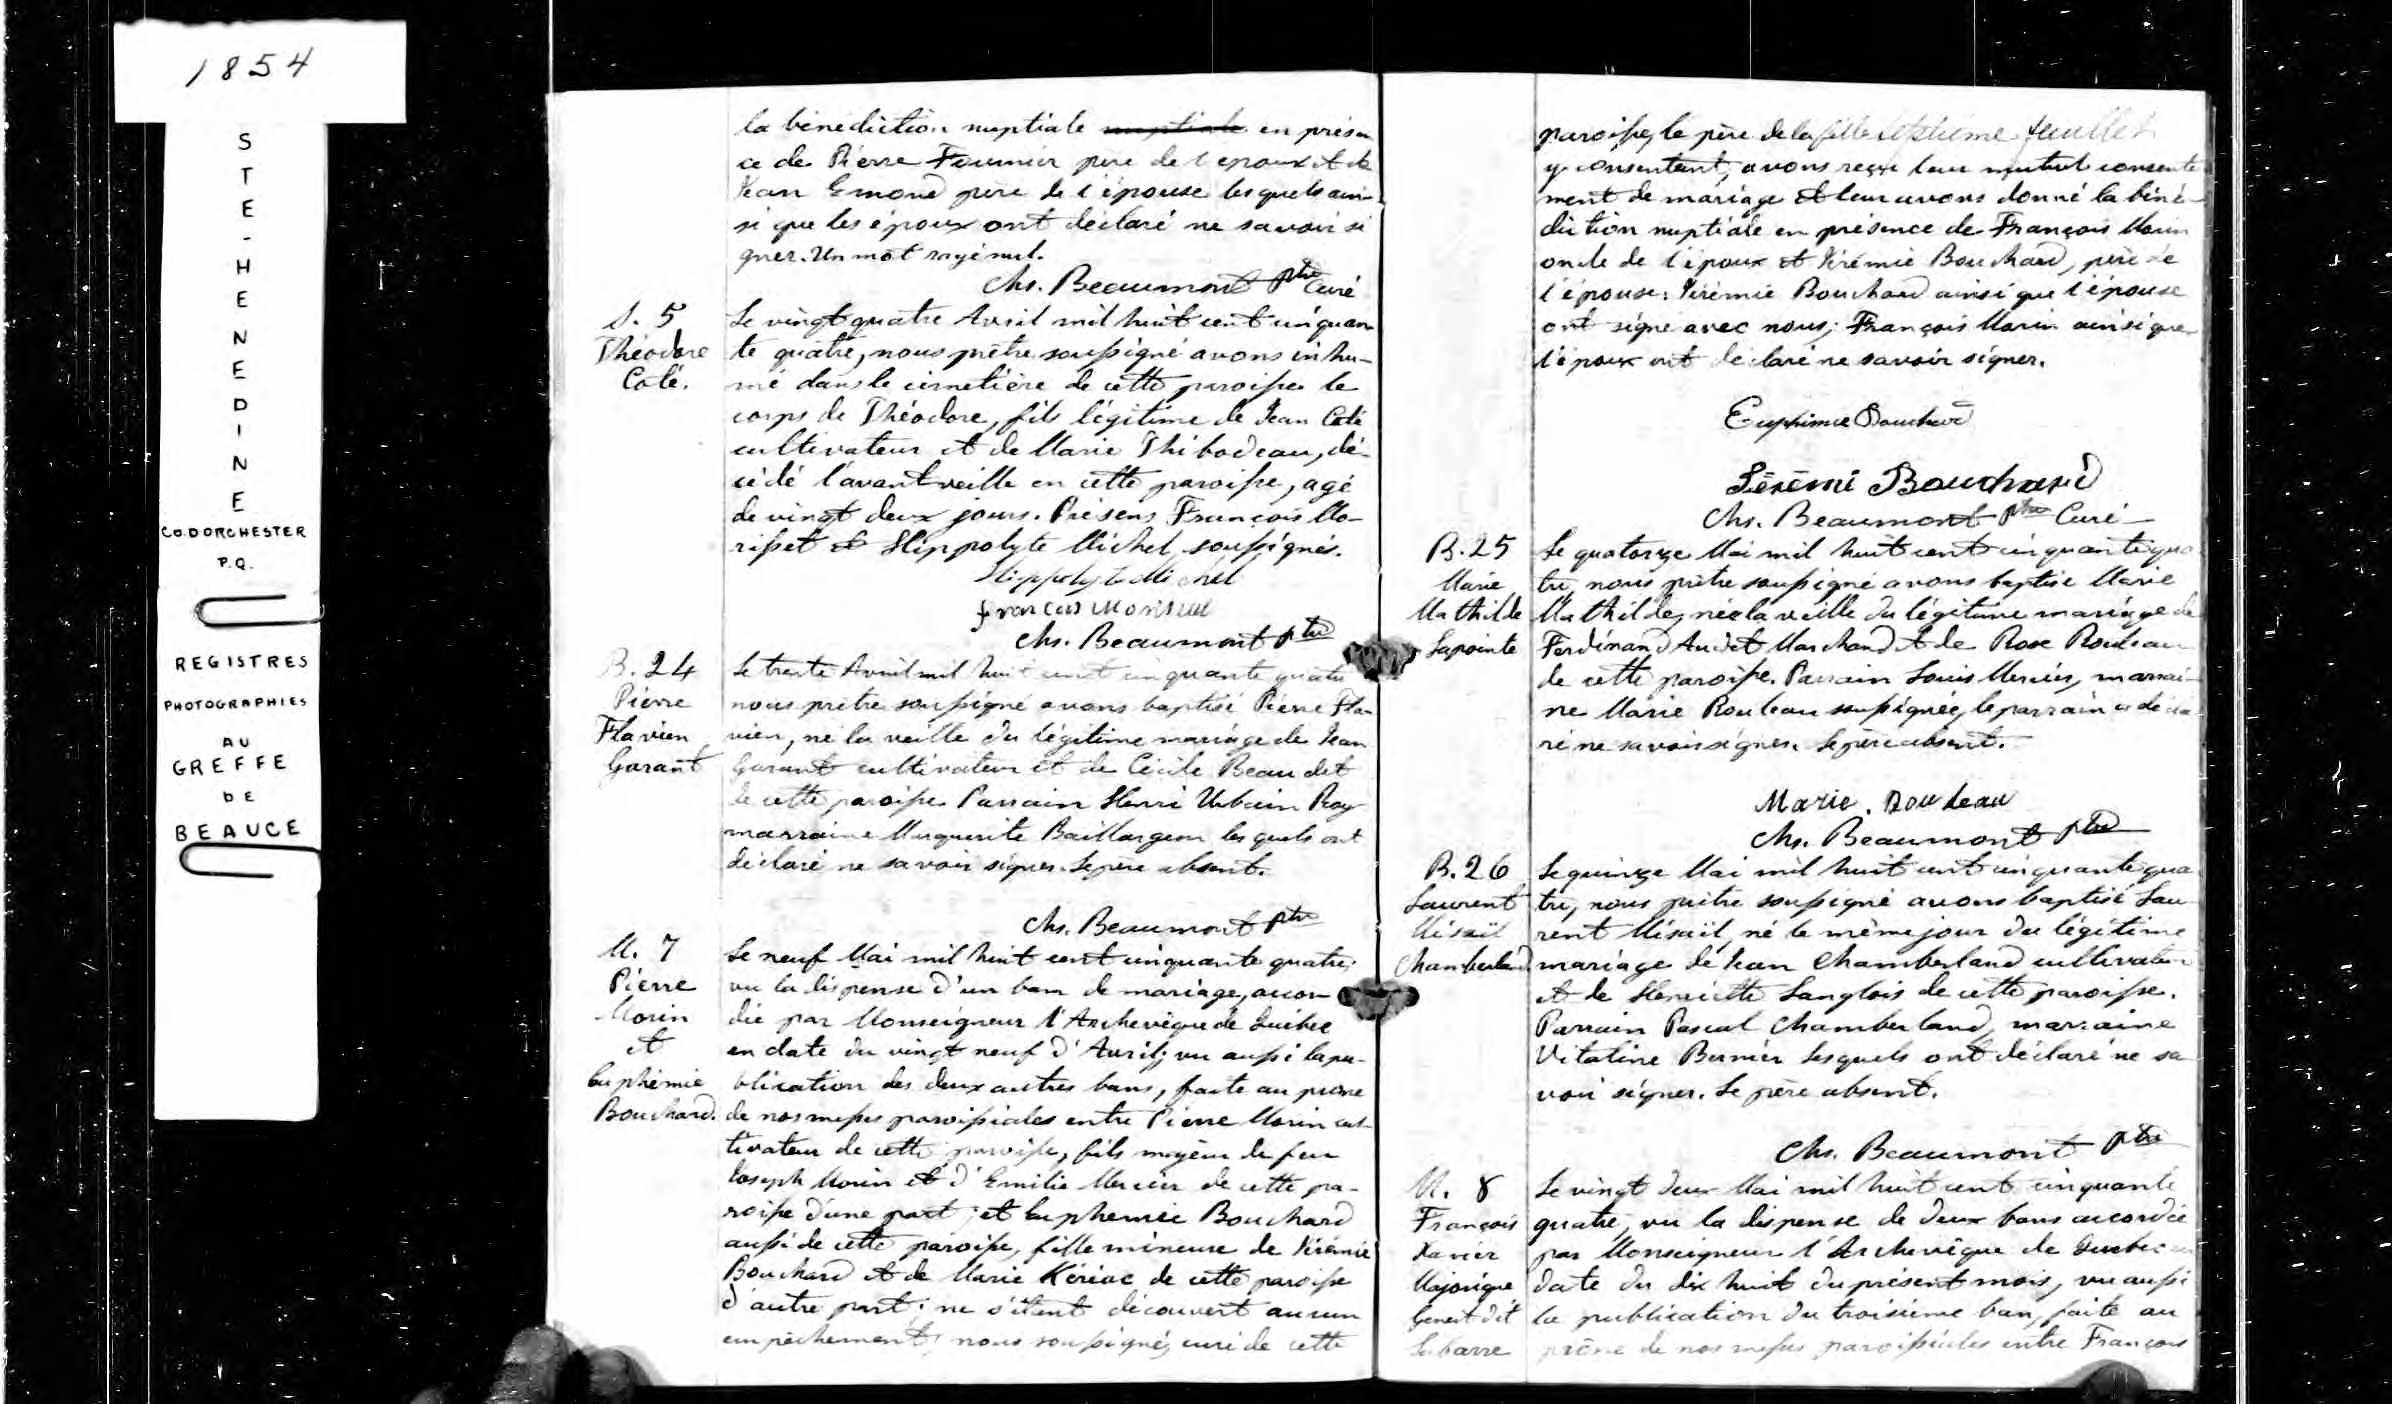 1854
S
T
E
-
H
E
N
E
D
I
N
E
CO. DORCHESTER
P.Q.
REGISTRES
PHOTOGRAPHIES
AU
GREFFE
DE
BEAUCE
la bénédiction nuptiale nuptiale en présen
ce de Pierre Fournier père de l'époux et de
Jean Emond père de l'épouse lesquels ain-
si que les époux ont déclaré ne savoir si
gner. Un mot rayé nul.
Chs. Beaumont Ptre Curé
S. 5
Théodore
Coté.
Le vingt quatre Avril mil huit cent cinquan
te quatre, nous prêtre soussigné avons inhu-
mé dans le cimetière de cette paroisse le
corps de Théodore, fils légitime de Jean Coté
cultivateur et de Marie Thibodeau, dé-
cédé l'avant veille en cette paroisse, agé
de vingt deux jours. Présens François Mo-
risset et Hippolyte Michel soussignés.
Hippolyte Michel
francois Morisset
Chs. Beaumont Ptre
B. 24
Pierre
Flavien
Garant
Le trente Avril mil huit cent cinquante quatre
nous prêtre soussigné avons baptisé Pierre Fla
vien, né la veille du légitime mariage de Jean
Garant cultivateur et de Cécile Beaudet
de cette paroisse. Parrain Henri Urbain Roy
marraine Marguerite Baillargeon lesquels ont
déclaré ne savoir signer. Le père absent.
Chs. Beaumont Ptre
M. 7
Pierre
Morin
et
Euphémie
Bouchard.
Le neuf Mai mil huit cent cinquante quatre;
vu la dispense d'un ban de mariage, accor
dée par Monseigneur l'Archevêque de Québec
en date du vingt neuf d'Avril; vu aussi la pu-
blication des deux autres bans, faite au prône
de nos messes paroissiales entre Pierre Morin cul-
tivateur de cette paroisse, fils majeur de feu
Joseph Morin et d'Emilie Mercier de cette pa-
roisse d'une part; et Euphemie Bouchard
aussi de cette paroisse, fille mineure de Jérémie
Bouchard et de Marie Kériac de cette paroisse
d'autre part; ne s'étant découvert aucun
empêchement, nous soussigné, curé de cette
paroisse, le père de la fille septième feuillet
y consentant, avons reçu leur mutuel consente
ment de mariage et leur avons donné la béné-
diction nuptiale en présence de François Morin
oncle de l'époux et Jérémie Bouchard, père de
l'épouse; Jérémie Bouchard ainsi que l'épouse
ont signé avec nous; François Morin ainsi que
l'époux ont déclaré ne savoir signer.
Euphimie Bouchard
Jérémi Bouchard
Chs. Beaumont Ptre Curé
B. 25
Marie
Mathilde
Lapointe
Le quatorze Mai mil huit cent cinquante qua
tre, nous prêtre soussigné avons baptisé Marie
Mathilde, née la veille du légitime mariage de
Ferdinand Audet Marchand et de Rose Rouleau
de cette paroisse. Parrain Louis Mercier, marrai-
ne Marie Rouleau soussignée, le parrain a décla
ré ne savoir signer. Le père absent.
Marie. Rouleau
Chs. Beaumont Ptre
B. 26
Laurent
Misaël
Chamberland
Le quinze Mai mil huit cent cinquante qua
tre, nous prêtre soussigné avons baptisé Lau
rent Misaël, né le même jour du légitime
mariage de Jean Chamberland cultivateur
et de Henriette Langlois de cette paroisse.
Parrain Pascal Chamberland, marraine
Vitaline Bernier lesquels ont déclaré ne sa
voir signer. Le père absent.
Chs. Beaumont Ptre
M. 8
François
Xavier
Majorique
Genest dit
Labarre
Le vingt deux Mai mil huit cent cinquante
quatre, vu la dispense de deux bans accordée
par Monseigneur l'Archevêque de Québec en
date du dix huit du présent mois, vu aussi
la publication du troisième ban, faite au
prône de nos messes paroissiales entre François